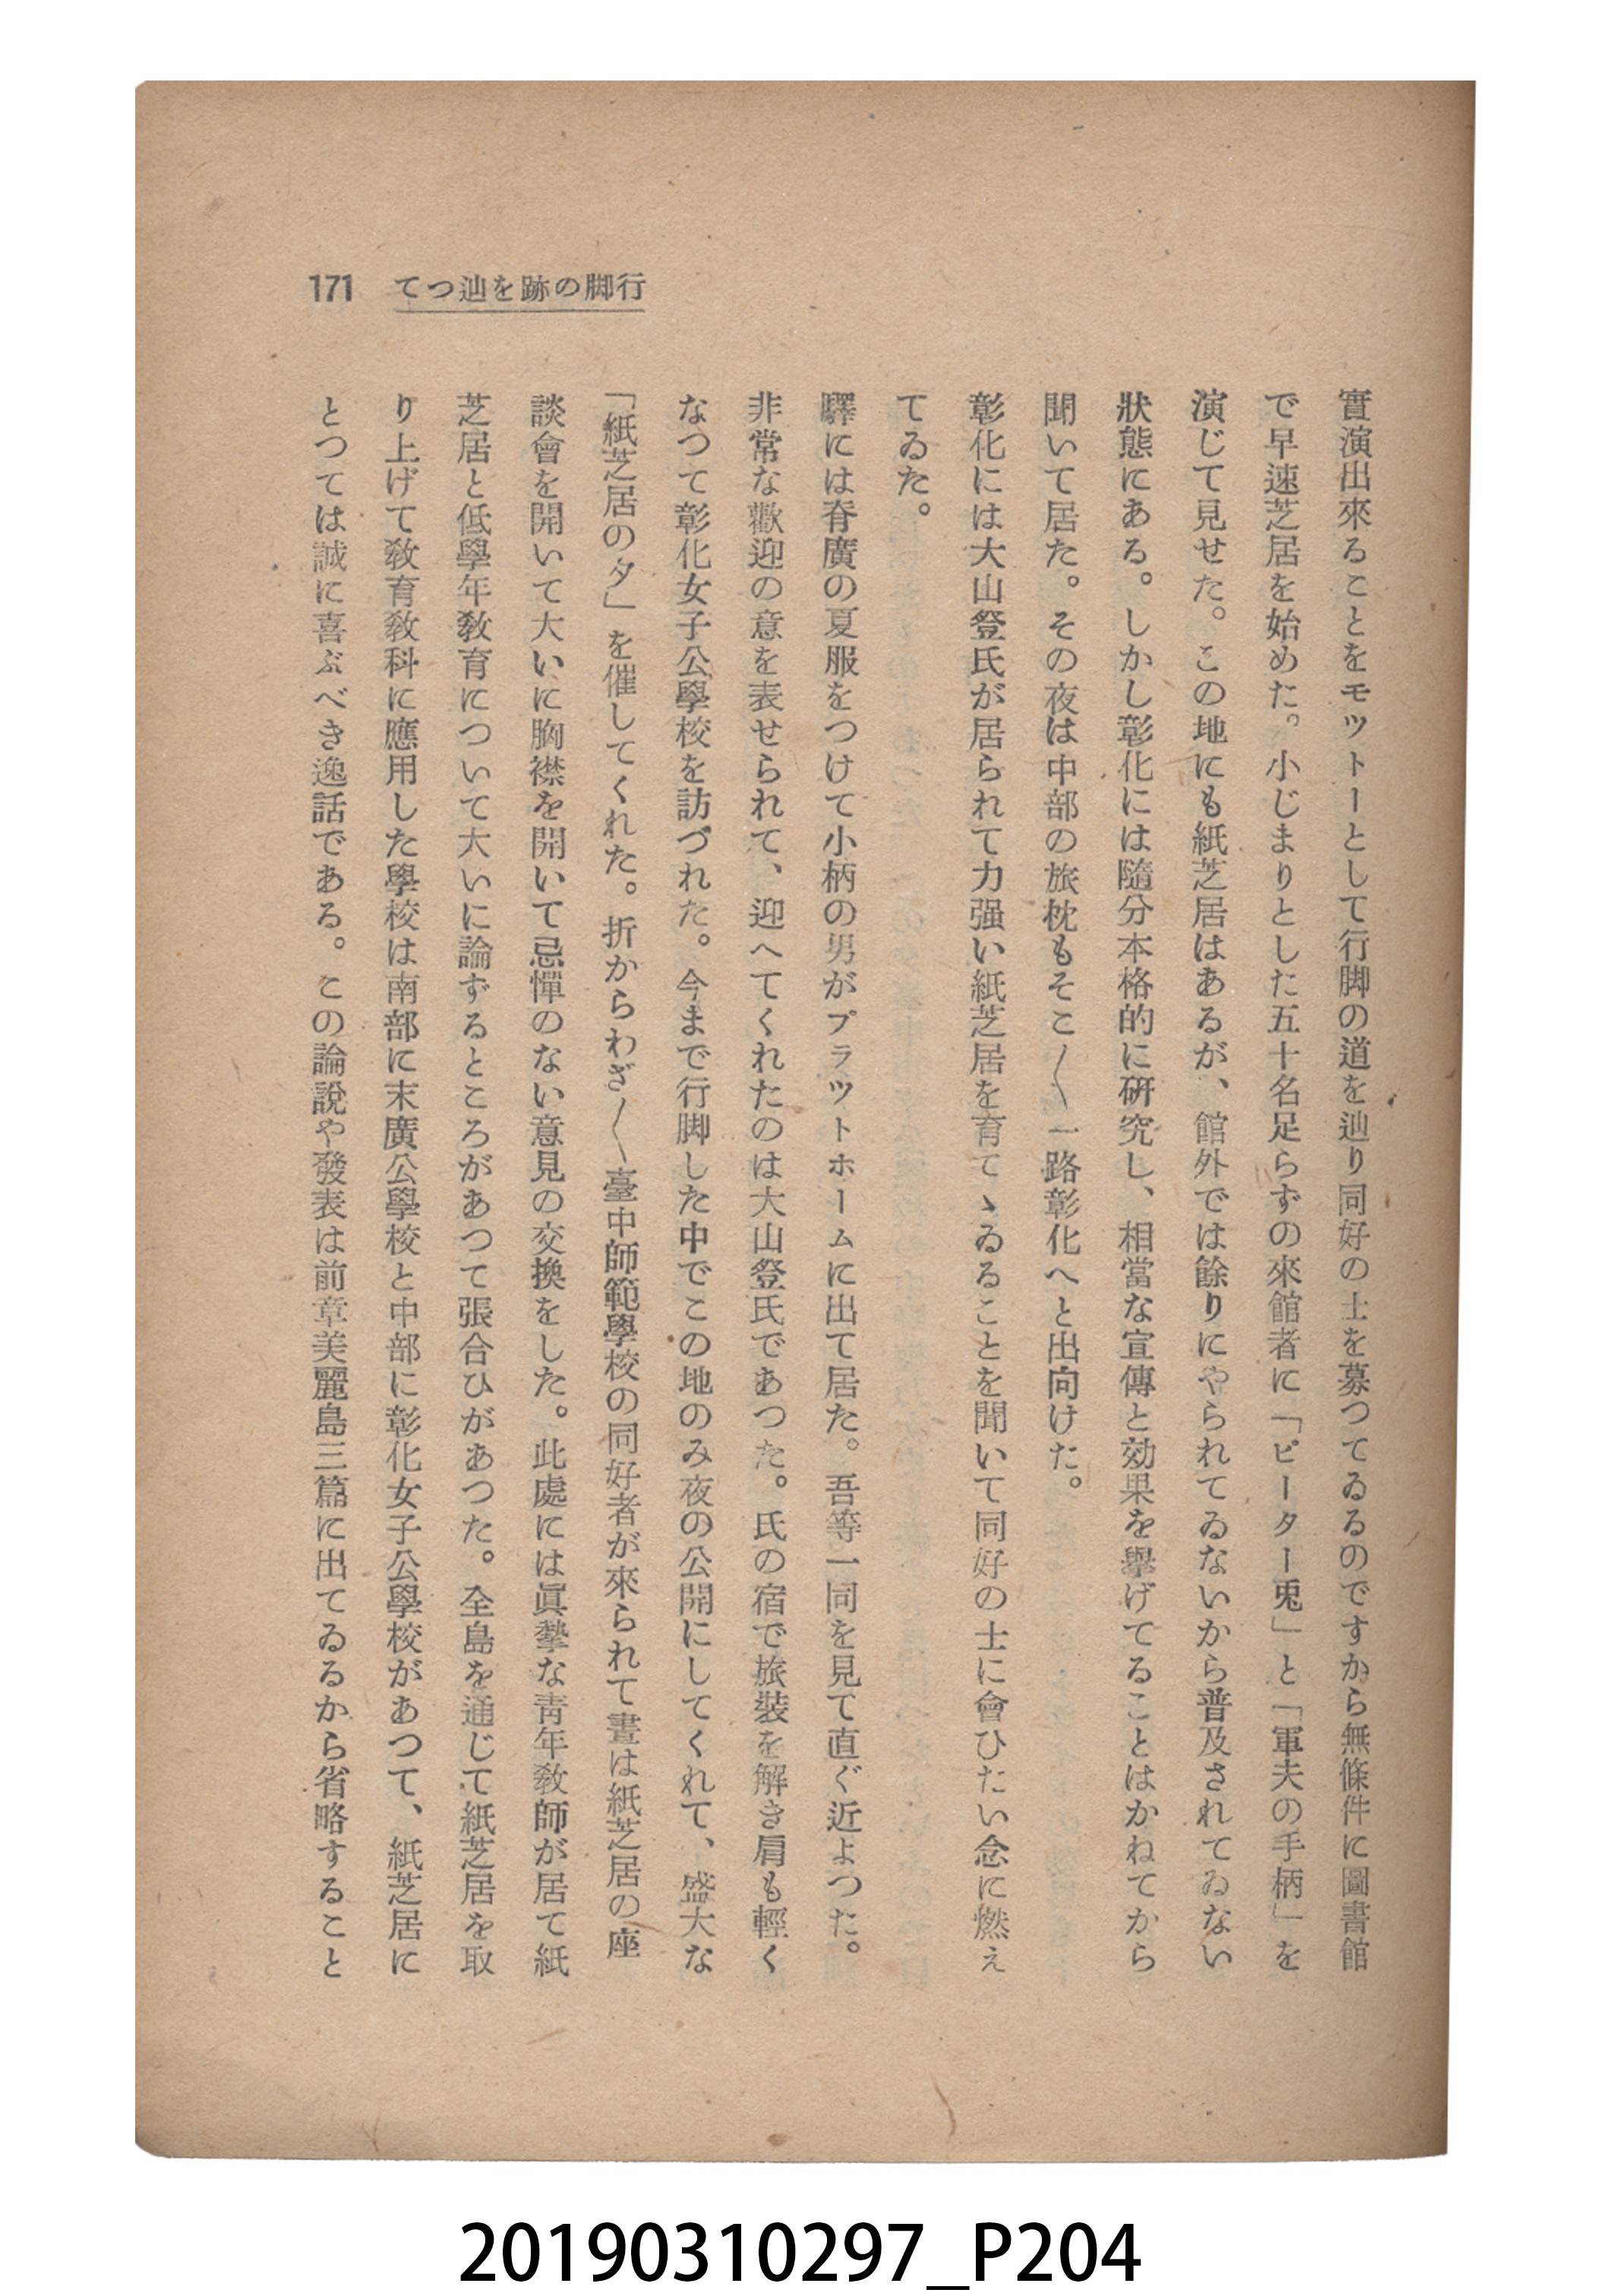 171 てつ辿を跡の脚行
實演出來ることをモツトーとして行脚の道を辿り同好の士を募つてゐるのですから無條件に圖書館
で早速芝居を始めた。小じまりとした五十名足らずの來館者に「ピーター兎」と「軍夫の手柄」を
演じて見せた。この地にも紙芝居はあるが、館外では餘りにやられてゐないから普及されてゐない
狀態にある。しかし彰化には隨分本格的に硏究し、相當な宣傳と効果を擧げてることはかねてから
聞いて居た。その夜は中部の旅枕もそこ〳〵一路彰化へと出向けた。
彰化には大山登氏が居られて力强い紙芝居を育てゝゐることを聞いて同好の士に會ひたい念に燃え
てゐた。
驛には脊廣の夏服をつけて小柄の男がプラツトホームに出て居た。吾等一同を見て直ぐ近よつた。
非常な歡迎の意を表せられて、迎へてくれたのは大山登氏であつた。氏の宿で旅裝を解き肩も輕く
なつて彰化女子公學校を訪づれた。今まで行脚した中でこの地のみ夜の公開にしてくれて、盛大な
「紙芝居の夕」を催してくれた。折からわざ〳〵臺中師範學校の同好者が來られて晝は紙芝居の座
談會を開いて大いに胸襟を開いて忌憚のない意見の交換をした。此處には眞摯な靑年敎師が居て紙
芝居と低學年敎育について大いに論ずるところがあつて張合ひがあつた。全島を通じて紙芝居を取
り上げて敎育敎科に應用した學校は南部に末廣公學校と中部に彰化女子公學校があつて、紙芝居に
とつては誠に喜ぶべき逸話である。この論說や發表は前章美麗島三篇に出てゐるから省略すること
20190310297_P204